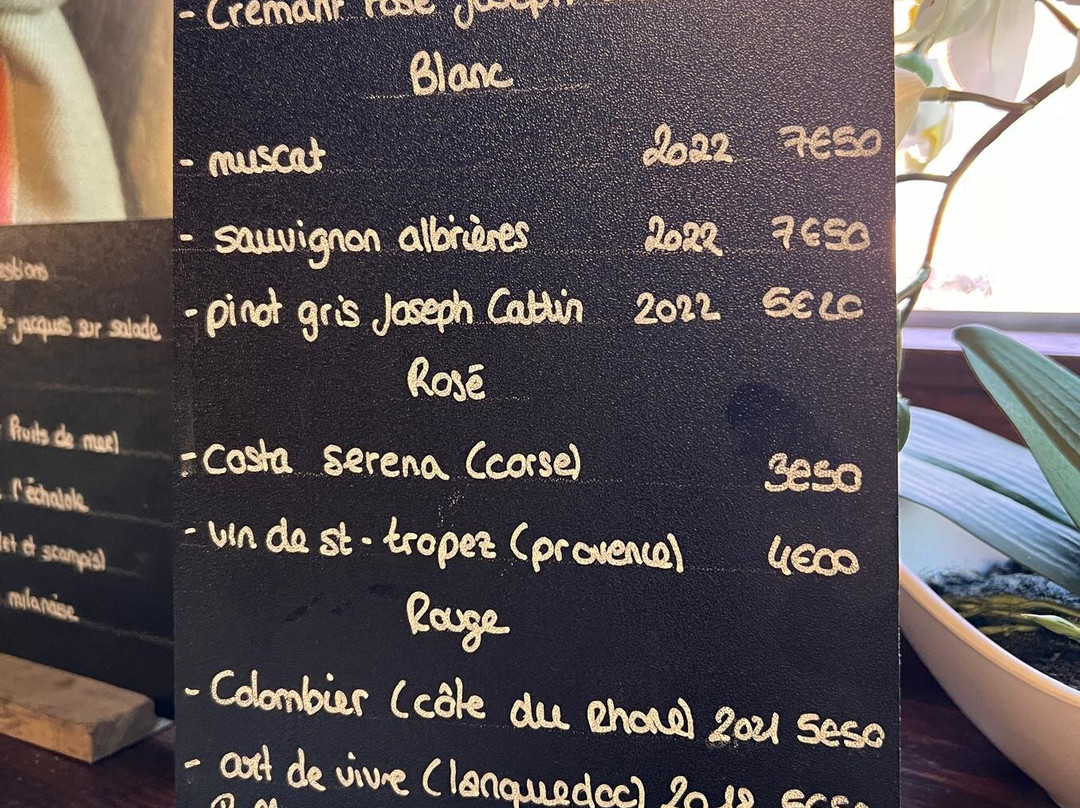 - Crémant rosé Joseph
Blanc
- muscat 2022 7€50
- sauvignon albrières 2022 7€50
- pinot gris Joseph Cattin 2022 5€20
Rosé
- Costa serena (corse) 3€50
- vin de st-tropez (provence) 4€00
Rouge
- Colombier (côte du Rhone) 2021 5€50
- art de vivre (languedoc)
estions
t-jacques sur salade
fruits de mer)
l'échalote
et scampis)
milanaise